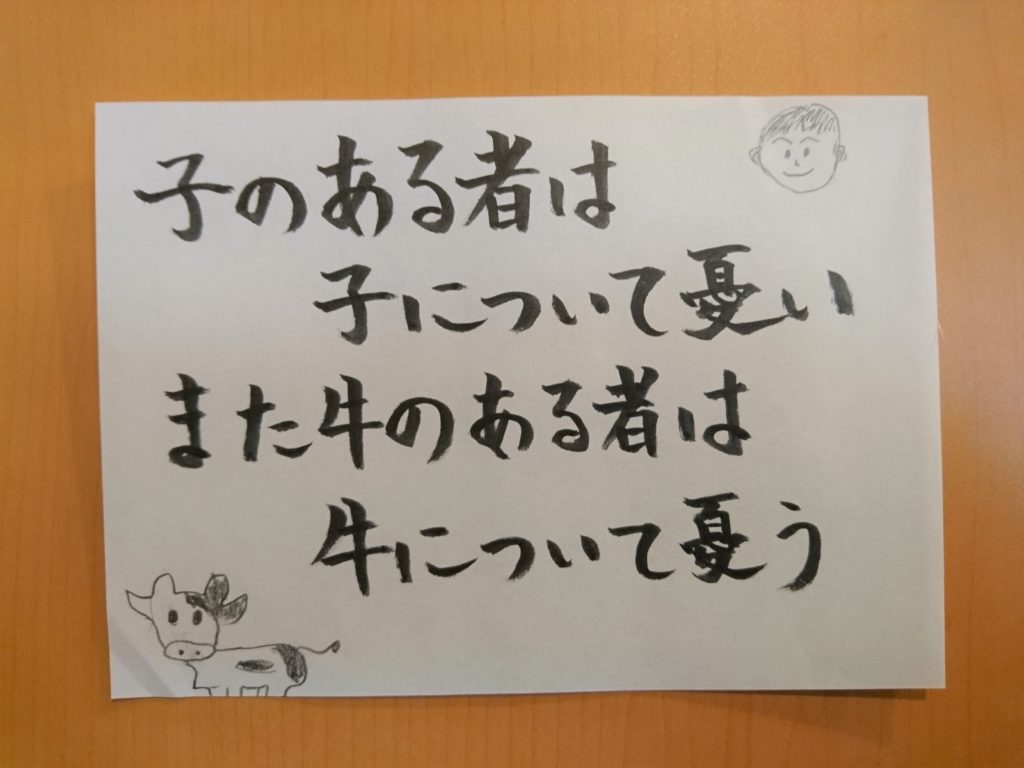 子のある者は
子について憂い
また牛のある者は
牛について憂う